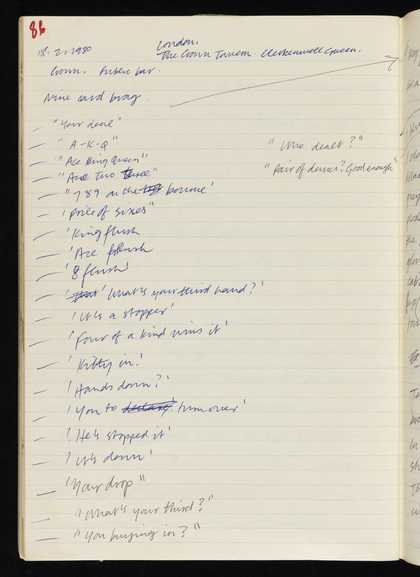 86
18.2.1980 London.
The Crown Tavern Clerkenwell Green.
Crown. Public bar.
Nine card brag
"Your deal"
"A-K-Q" "Who dealt?"
"Ace King Queen" "Pair of deuces? Good enough"
"Ace Two Three"
"789 on the bounce'
'Prile of sixes"
'King flush
'Ace flush
'8 flush'
'What's your third hand?'
'It's a stopper'
'Four of a kind wins it'
'Kitty in.'
'Hands down?'
'You to turnover'
'He's stopped it'
'It's down'
'Your drop"
"What's your third?"
"You buying in?"